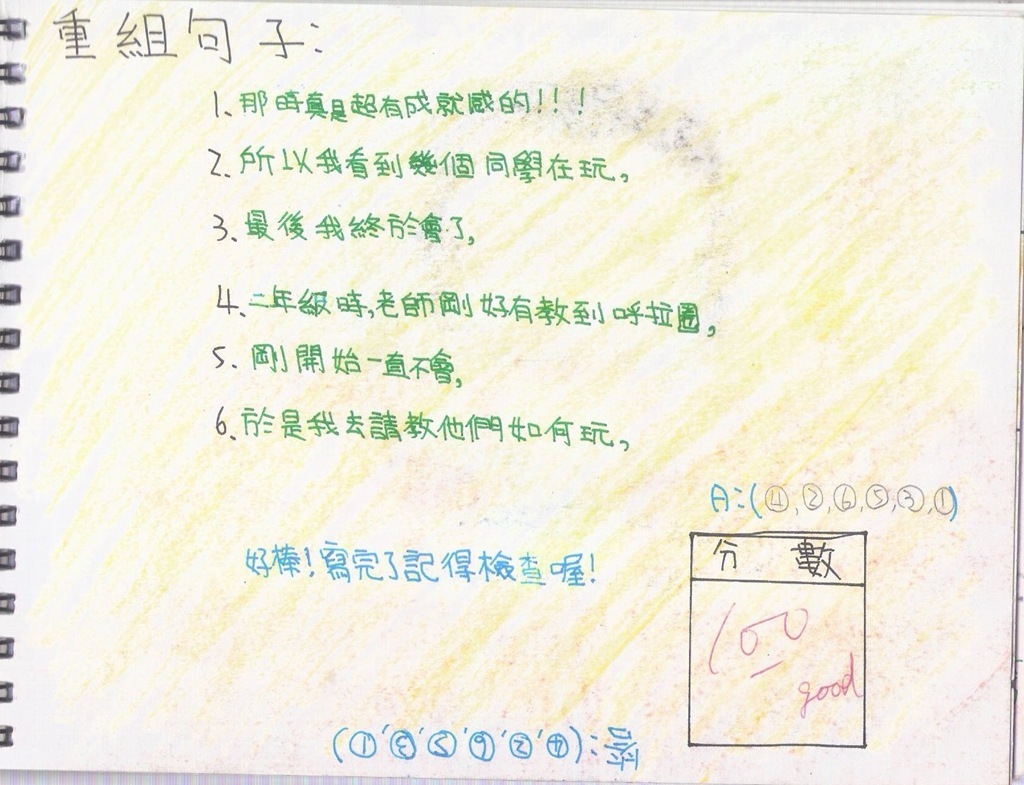 重組句子:
1. 那時真是超有成就感的!!!
2. 所以我看到幾個同學在玩,
3. 最後我終於會了,
4. 二年級時,老師剛好有教到呼拉圈,
5. 剛開始一直不會,
6. 於是我去請教他們如何玩,
A:(④,②,⑥,⑤,③,①)
好棒!寫完了記得檢查喔!
分 數
100
good
解:(④,②,⑥,⑤,③,①)